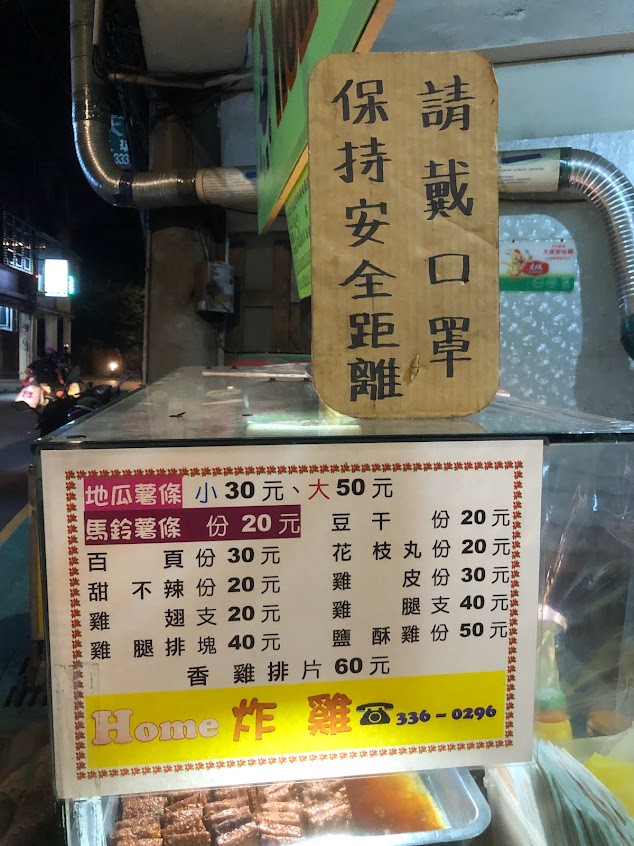 請戴口罩
保持安全距離
地瓜薯條 小30元、大50元
馬鈴薯條 份20元
豆干 份20元
百頁份30元
花枝丸份20元
甜不辣份20元
雞皮份30元
雞翅支20元
雞腿支40元
雞腿排塊40元
鹽酥雞份50元
香雞排片60元
Home 炸雞☎336-0296
333